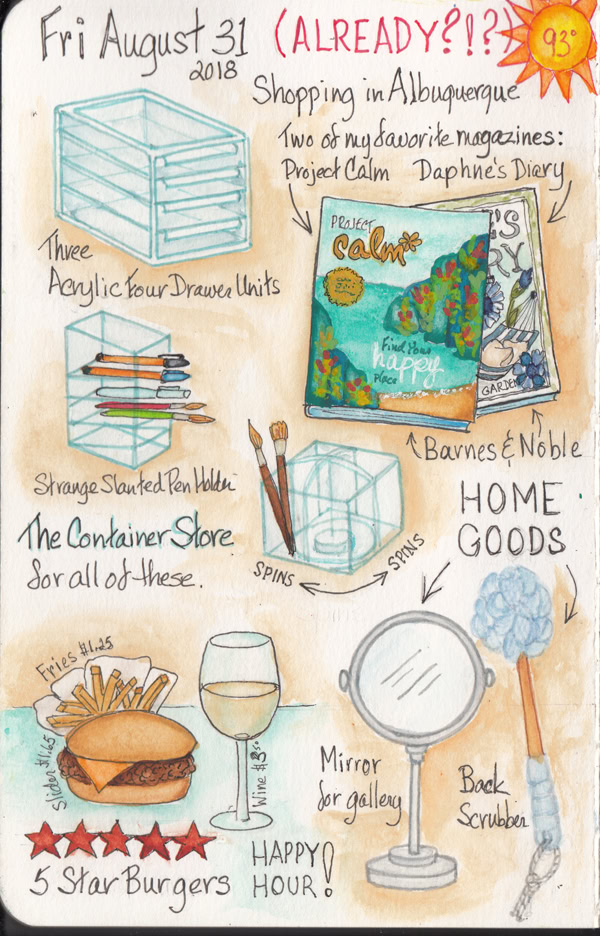 Fri August 31 (ALREADY?!?)
2018
93°
Shopping in Albuquerque
Two of my favorite magazines:
Project Calm Daphne's Diary
PROJECT
calm*
Find Your
happy
Place
E'S
RY
GARDEN
Three
Acrylic Four Drawer Units
Barnes & Noble
Strange Slanted Pen Holder
The Container Store
for all of these.
SPINS SPINS
HOME
GOODS
Fries $1.25
Slider $1.65
Wine $3.50
Mirror
for gallery
Back
Scrubber
5 Star Burgers
HAPPY
HOUR!